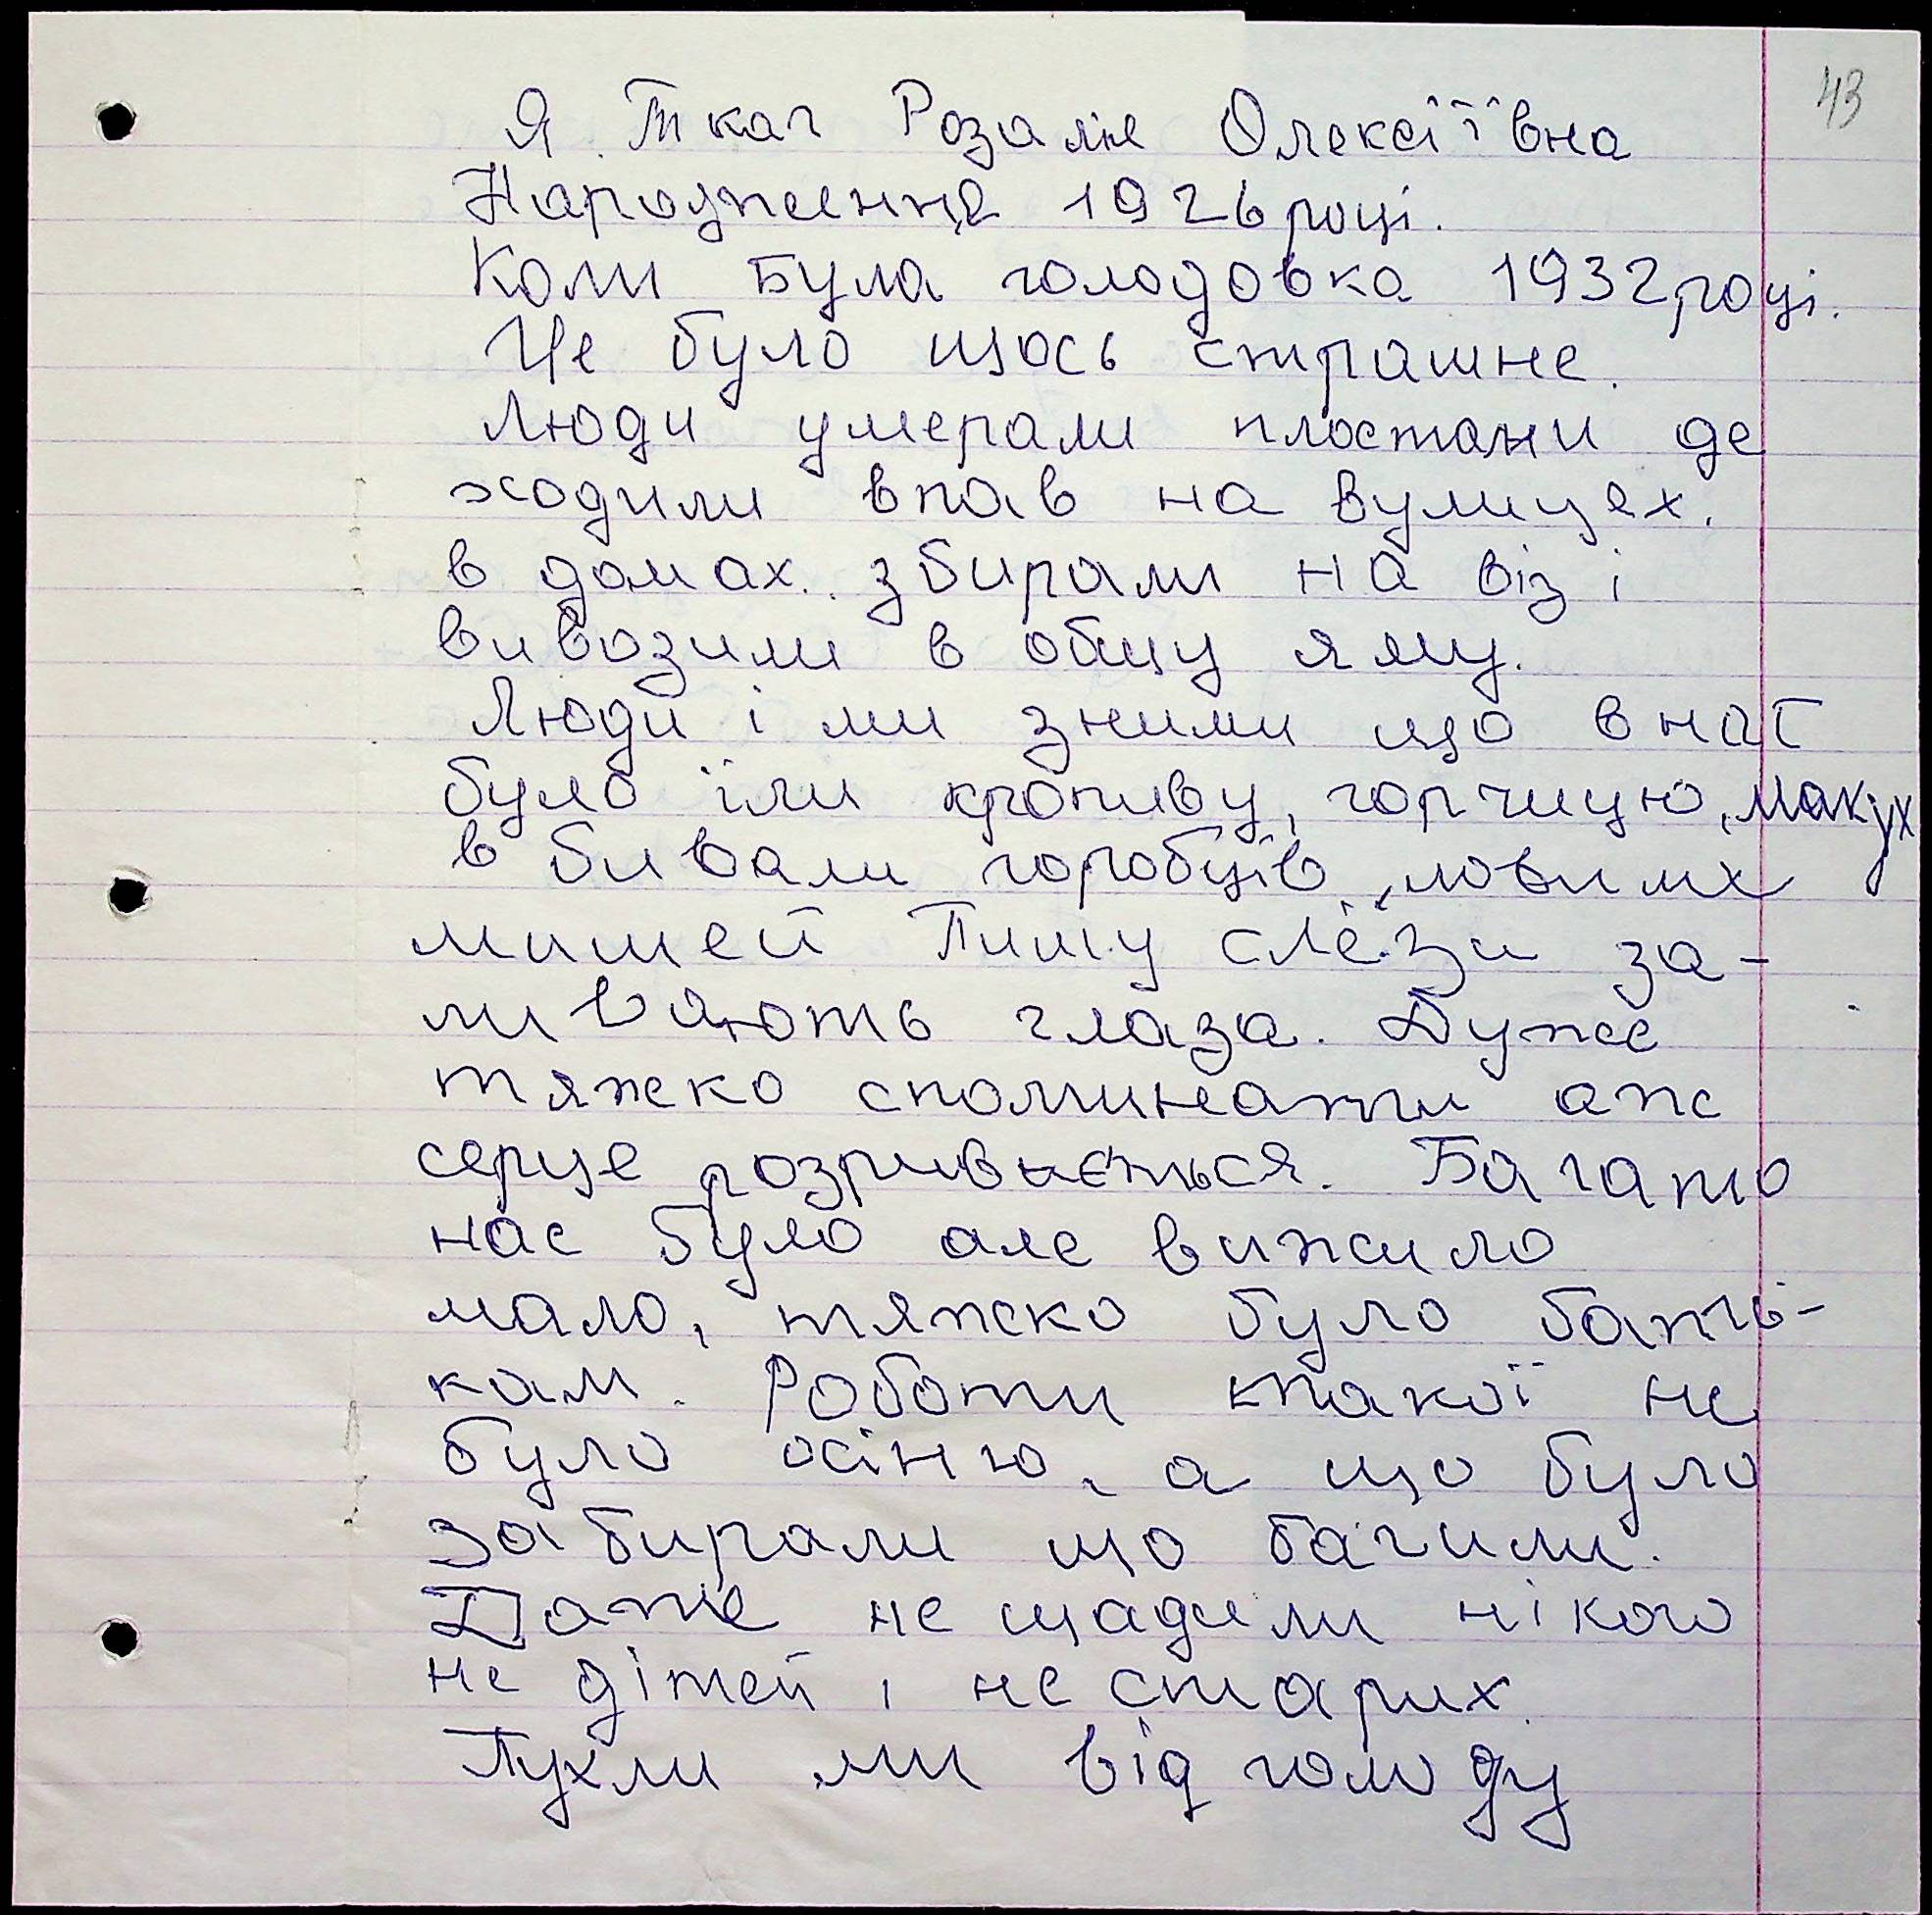 43
Я Ткач Розалія Олексіївна
Народження 1926 році.
Коли Була голодовка 1932 році.
Це було щось страшне.
Люди умерали пластами де
ходили впав на вулицях.
в домах. збирали на віз і
вивозили в общу яму.
Люди і ми зними що внас
було їли кропиву, горчицю, макух
в бивали горобців, ловили
мишей Пишу слёзи за-
ливають глаза. Дуже
тяжко споминати аж
серце розривається. Багато
нас було але вижило
мало, тяжко було бать-
кам. Роботи такої не
було осіню, а що було
забирали що бачили.
Даже не щадили нікого
не дітей і не старих.
Пухли ми від голоду